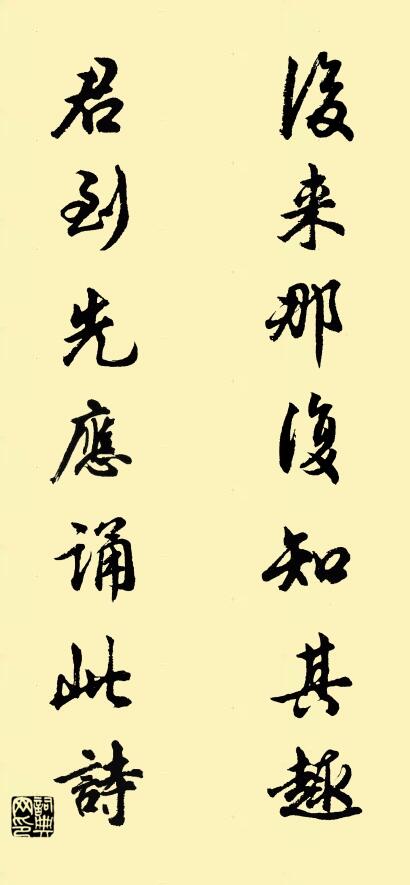 後来那復知其趣
君到先應誦此詩
詞典網印